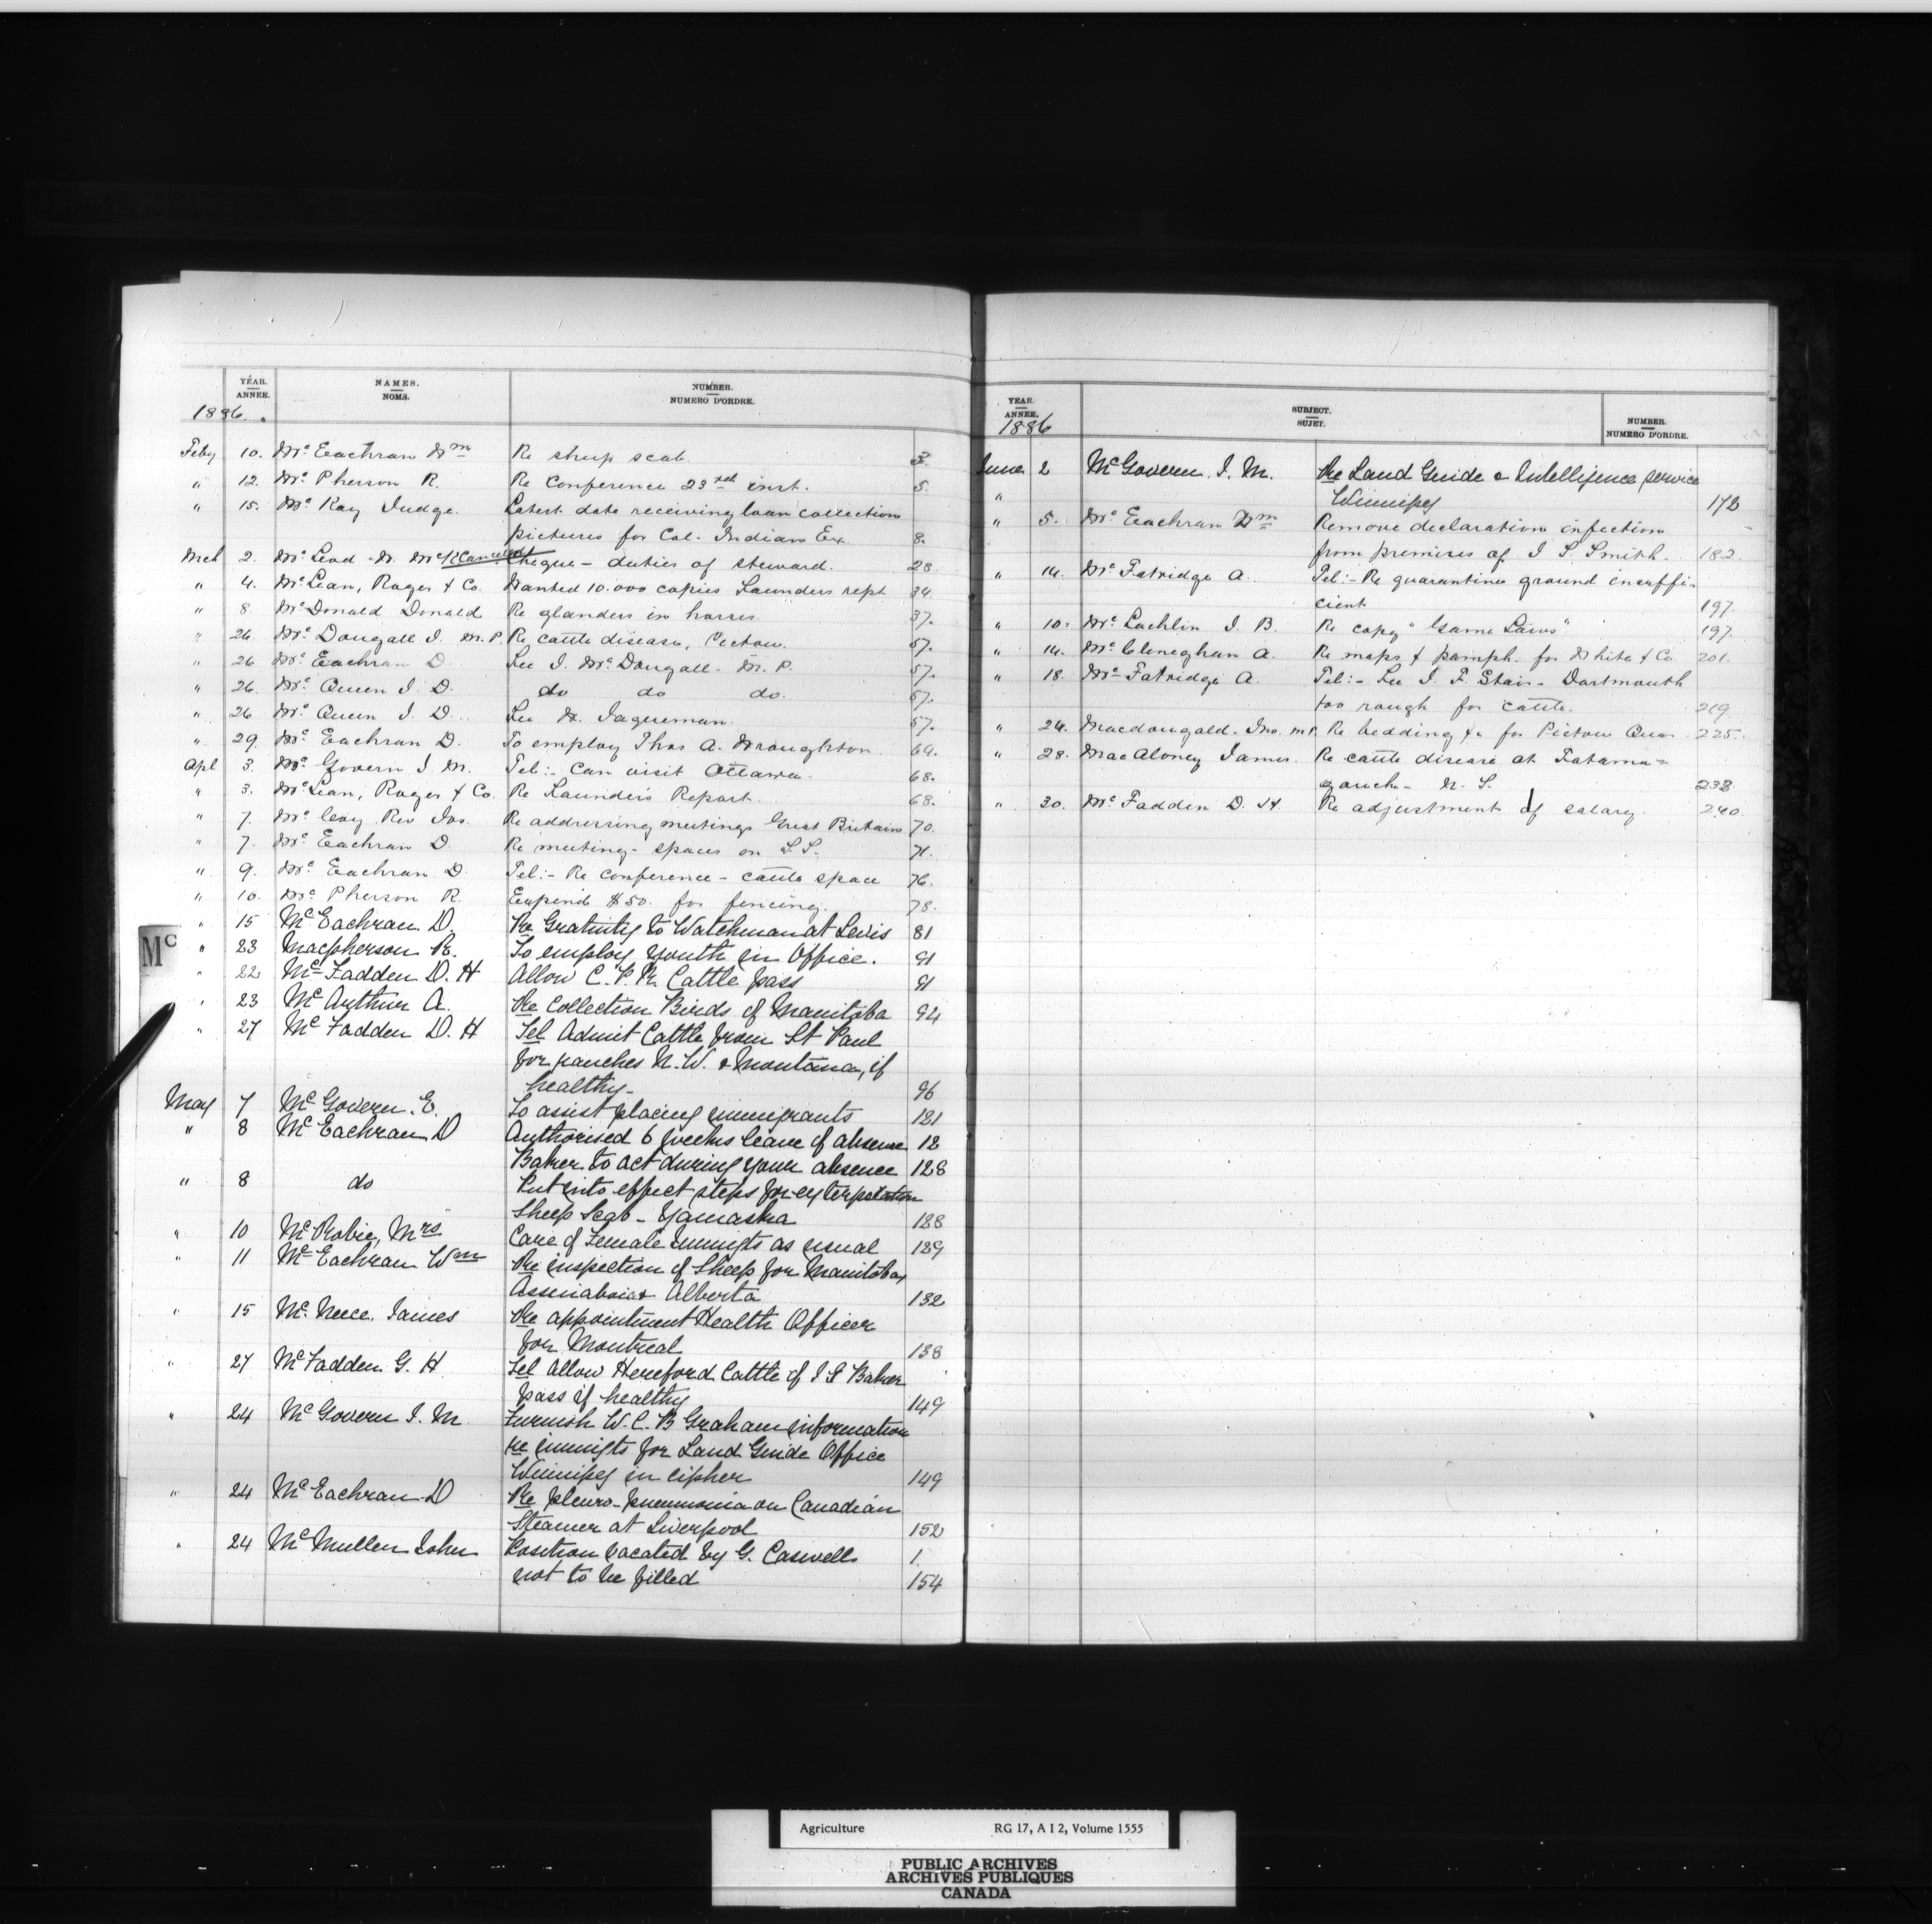 YEAR. ANNÉE. NAMES. NOMS. NUMBER. NUMERO D'ORDRE.
1886.
Feby 10. McEachran Wm Re sheep scab 3.
" 12. McPherson R. Re Conference 23rd inst. 5.
" 15. McKay Judge. Latest date receiving loan collection
pictures for Col. Indian Ex. 8.
Mch 2. McLeod Cheque - duties of steward. 28
" 4. McLean, Roger & Co. Wanted 10.000 copies Saunders rept 34.
" 8. McDonald Donald Re glanders in horses. 37.
" 26. McDougall J. M.P. Re cattle disease, Pictou. 57.
" 26 McEachran D. See J. McDougall - M.P. 57.
" 26. McQueen J. D. do do do. 57.
" 26 McQueen J. D. See W. Jaqueman. 57.
" 29. McEachran D. To employ Thos A. Wroughton. 64.
Apl 3. McGovern J. M. Tel:- Can visit Ottawa. 68.
" 3. McLean, Roger & Co. Re Saunders Report. 68.
" 7. McCavy Rev Jas. Re addressing meetings Great Britain 70.
" 7. McEachran D. Re meeting - spaces on S.S. 71.
" 9. McEachran D. Tel:- Re Conference - cattle space 76.
" 10. McPherson R. Expend $50. for fencing. 78.
Mc
" 15 McEachran D. Re Gratuity to Watchman at Levis 81
" 23 Macpherson R. To employ youth in Office. 91
" 22 McFadden D. H Allow C. P. R. Cattle pass 91
" 23 McArthur A. Re Collection Birds of Manitoba 94
" 27 McFadden D. H Tel Admit Cattle from St Paul
for ranches N. W. & Montana, if
healthy - 96
May 7 McGovern. E. To assist placing immigrants 121
" 8 McEachran D Authorised 6 weeks leave of absence 12
Baker to act during your absence 128
" 8 do Put into effect steps for exterpatation
Sheep Scab - Yamaska 128
" 10 McRobie, Mrs Care of Female Immigts as usual 129
" 11 McEachran Wm Re inspection of Sheep for Manitoba,
Assinaboia & Alberta 132
" 15 McNeece. James Re appointment Health Officer
for Montreal 138
" 27 McFadden G. H Tel Allow Hereford Cattle of I G Baker
pass if healthy 149
" 24 McGovern J. M Furnish W. C. B Graham information
re immigts for Land Guide Office
Winnipeg in cipher 149
" 24 McEachran D Re pleuro-pneumonia on Canadian
Steamer at Liverpool 152
" 24 McMullen John Position vacated by G. Caswell 1
not to be filled 154
YEAR. ANNÉE. SUBJECT. SUJET. NUMBER. NUMERO D'ORDRE.
1886
June 2 McGovern J. M. Re Land Guide & Intelligence service
" Winnipeg 172
" 5. McEachran Wm Remove declaration infection
from premises of J. S. Smith. 182.
" 14. McFatridge A. Tel:- Re quarantine ground insuffi-
cient 197.
" 10. McLachlin J. B. Re copy "Game Laws" 197.
" 14. McCleneghan A. Re maps & pamph. for White & Co. 201.
" 18. McFatridge A. Tel:- See J. F. Stairs - Dartmouth
too rough for cattle. 219.
" 24. Macdougald. Jno. M.P. Re bedding &c for Pictou Quar. 225.
" 28. MacAloney James. Re cattle disease at Tatama-
gouche - N. S. 238
" 30. McFadden D. H. Re adjustment of salary. 240.
Agriculture RG 17, A I 2, Volume 1555
PUBLIC ARCHIVES
ARCHIVES PUBLIQUES
CANADA